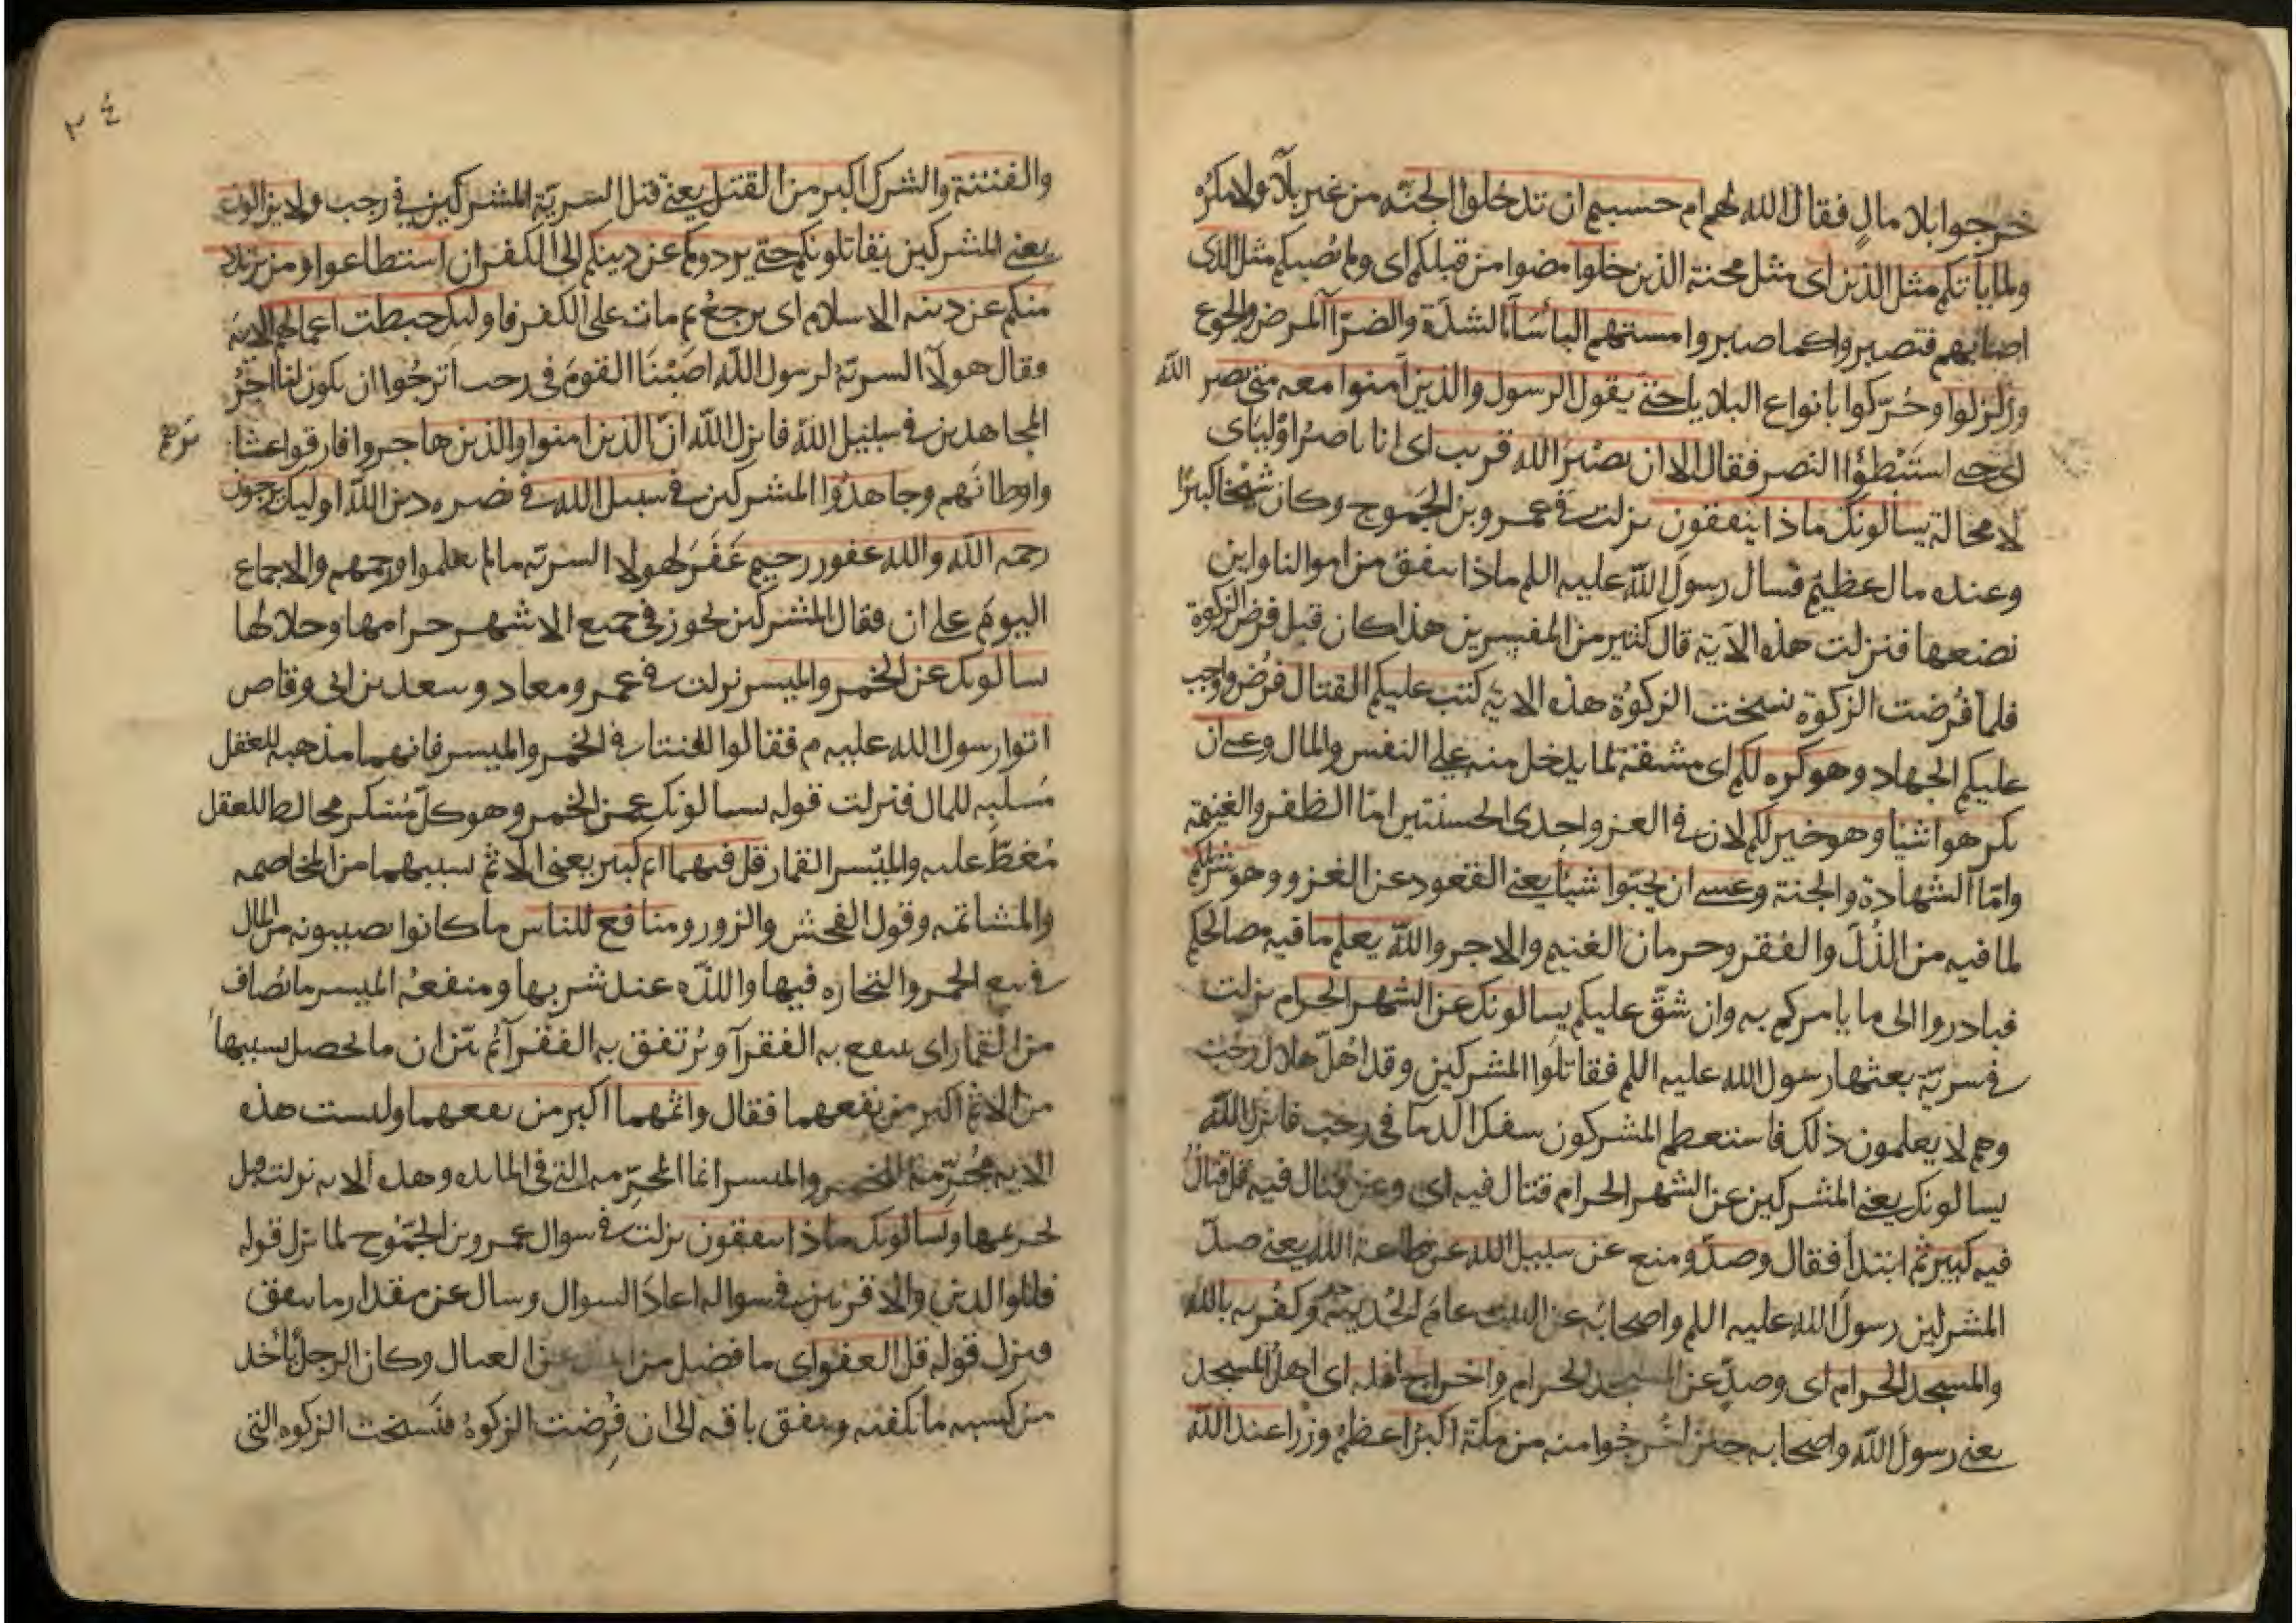 خرجوا بلا مالٍ فقال الله لهم ام حسبتم ان تدخلوا الجنة من غير بلآءٍ ولا مكرُه
ولما يأتكم مثل الذين اى مثل محنة الذين خلوا مضوا من قبلكم اى ولم يُصبكم مثل الذى
اصابهم فتصبروا كما صبروا مستهم البأسآء الشدّة والضرّآء المرض والجوع
وزلزلوا وحُرّكوا بانواع البلاء حتى يقول الرسول والذين آمنوا معه متى نصر الله
اى حتى استَبْطؤا النصر فقال الا ان نصْرَ الله قريب اى انا ناصرُ اوْليآى
لا محالة يسألونك ماذا ينفقون نزلت فى عمرو بن الجَموح وكان شيْخا كبيرًا
وعنده مال عظيم فسال رسول الله عليه اللم ماذا ننفق من اموالنا واين
نضعها فنزلت هذه الآية قال كثير من المفسرين هذا كان قبل فرض الزكوة
فلما فُرضت الزكوة نسخت الزكوةُ هذه الاية كتب عليكم القتال فُرض واوجب
عليكم الجهاد وهو كره لكم اى مشقة لما يدخل منه على النفس والمال وعسى ان
تكرهوا شيأ وهو خير لكم لان فى الغزو احدى الحسنتين امّا الظفر والغنيمة
وامّا الشهادة والجنة وعسى ان تحبّوا شيئا يعنى القعود عن الغزو وهو شرّ لكم
لما فيه من الذُلّ والفقر وحرمان الغنيم والاجر والله يعلم ما فيه مصالحكم
فبادروا الى ما يامركم به وان شقّ عليكم يسالونك عن الشهر الحرام نزلت
فى سريّة بعثها رسول الله عليه اللم فقاتلوا المشركين وقد اُهِلّ هلال رجب
وهم لا يعلمون ذلك فاستعظم المشركون سفك الدمآ فى رجب فانزل الله
يسالونك يعنى المشركين عن الشهر الحرام قتال فيه اى وعن قتال فيه قل قتالٌ
فيه كبير ثم ابتدأ فقال وصدّ ومنع عن سبيل الله عن طاعة الله يعنى صدّ
المشركين رسول الله عليه اللم واصحابه عن البيت عام الحُديبية وكفْر به بالله
والمسجد الحرام اى وصدّ عن المسجد الحرام واخراج اهله اى اهل المسجد
يعنى رسول الله واصحابه حين اُخرجُوا منه من مكة اكبرُ اعظمُ وزرا عند الله
٣٤
والفتنة والشرك اكبر من القتل يعنى قتل السريّة المشركين فى رجب ولا يزالون
يعنى المشركين يقاتلونكم حتى يردوكم عن دينكم الى الكفر ان استطاعوا ومن يرتدد
منكم عن دينه الاسلام اى يرجعْ ثم مات على الكفر فاوليك حبطت اعمالهم الاية
وقال هولآ السريّة لرسول الله اصَبْنَا القومَ فى رجب اترجُوا ان يكون لنا اجْرُ
المجاهدين فى سبيل الله فانزل الله انّ الذين امنوا والذين هاجروا فارقوا عشا
ئرهم
واوطانهم وجاهدُوا المشركين فى سبيل الله فى نصره دين الله اوليك يرجون
رحمه الله والله غفور رحيم غَفَرَ لهولا السريّه ما لم يعلموا ورحمهم والاجماع
اليومَ على ان فقال المشركين يجوز فى جميع الاشهر حرامها وحلالها
يسالونك عن الخمر والميسر نزلت فى عمر ومعاد وسعد بن ابى وقاص
اتوا رسول الله عليه م فقالوا افتنا فى الخمر والميسر فانهما مذهبه للعقل
مُسلبه للمال فنزلت قوله يسالونك عن الخمر وهو كلّ مُسْكر مخالط للعقل
مُغطٍّ عليه والميْسر القمار قل فيهما اثم كبير يعنى الاثم بسببهما من المخاصمه
والمشاتمه وقول الفحش والزور ومنافع للناس ما كانوا يصيبونه من المال
فى بيع الخمر والتجاره فيها واللذّه عند شربها ومنفعهُ الميسر ما يُصاف
من القمار اى ينتفع به الفقرآ ويُرتفق به الفقرآ ثم بيّن ان ما يحصل بسببها
من الاثم اكبر من نفعهما فقال واثمهما اكبر من نفعهما وليست هذه
الايه مُحُرِّمهً الخمر والميسر انما المحرِّمه التى فى المايده وهذه الايه نزلت قبل
تحريمها ويسالونك ماذا ينفقون نزلت فى سوال عمرو بن الجَمُوح لما نزل قوله
فللوالدين والاقربين فى سواله اعادَ السوال وسال عن مقدار ما ينفق
فنزل قوله قل العفو اى ما فضل من عن العيال وكان الرجل يأخُد
من كسبه ما يكفيه وينفق باقيه الى ان فُرِضت الزكوهُ فنسخت الزكوه التى